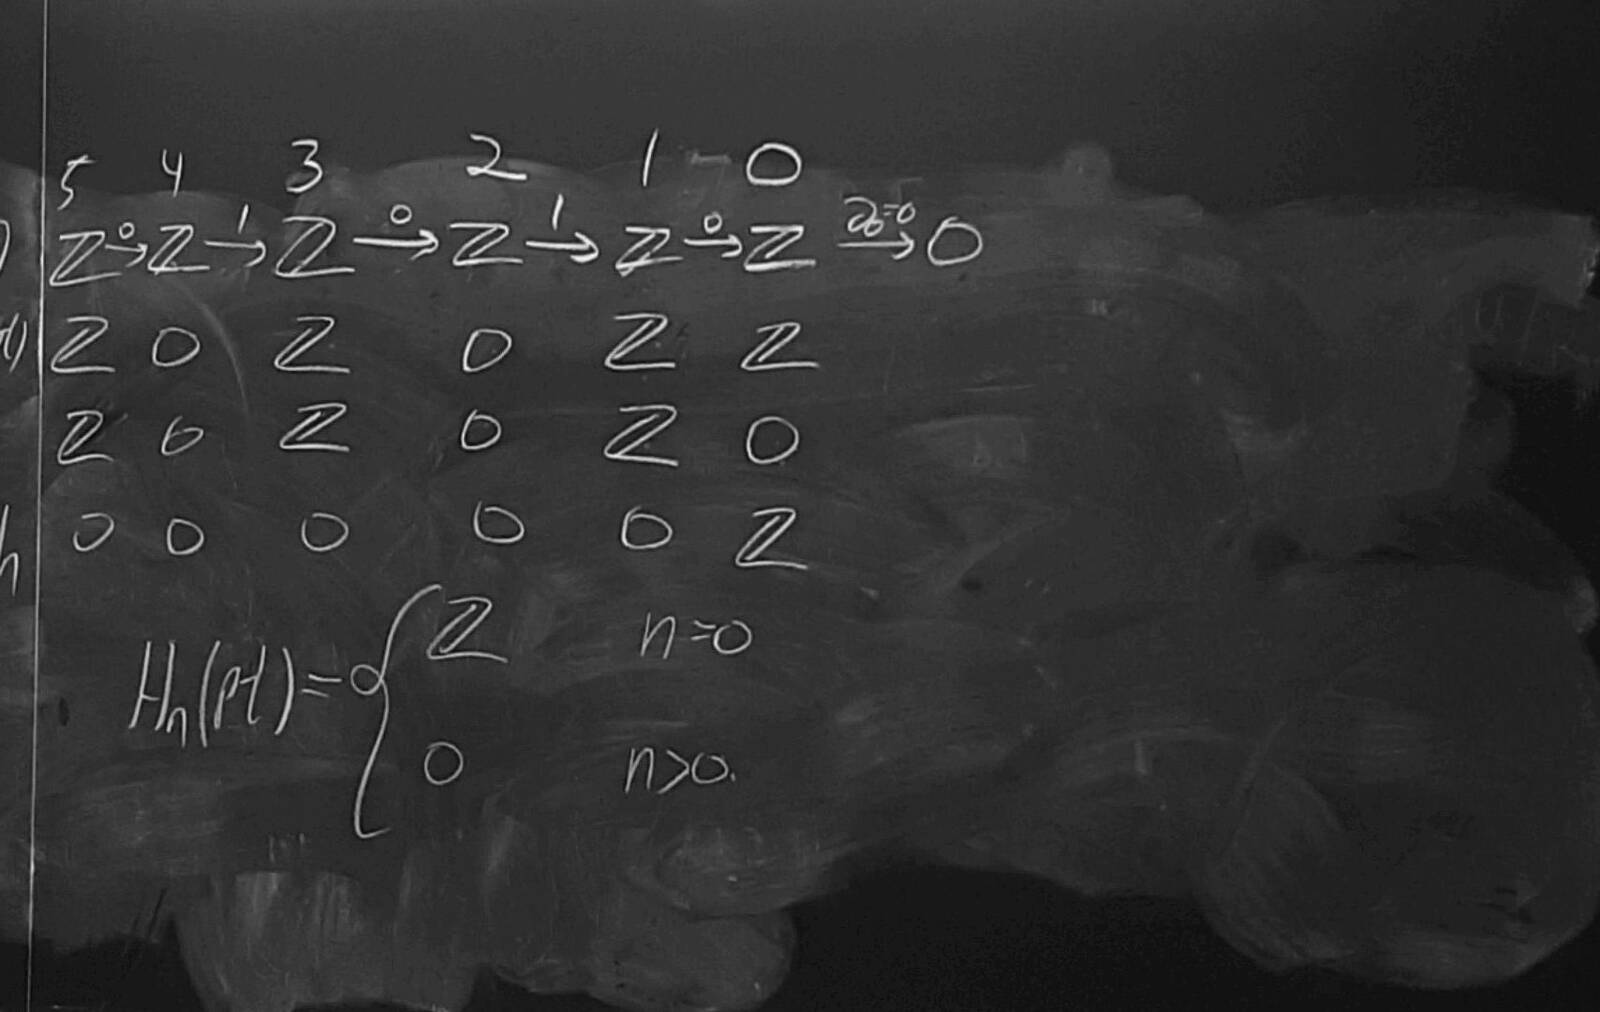 5 4 3 2 1 0
ℤ →0 ℤ →1 ℤ →0 ℤ →1 ℤ →0 ℤ →∂₀=0 0
ℤ 0 ℤ 0 ℤ ℤ
ℤ 0 ℤ 0 ℤ 0
0 0 0 0 0 ℤ
Hₙ(pt) = { ℤ n=0
0 n>0.